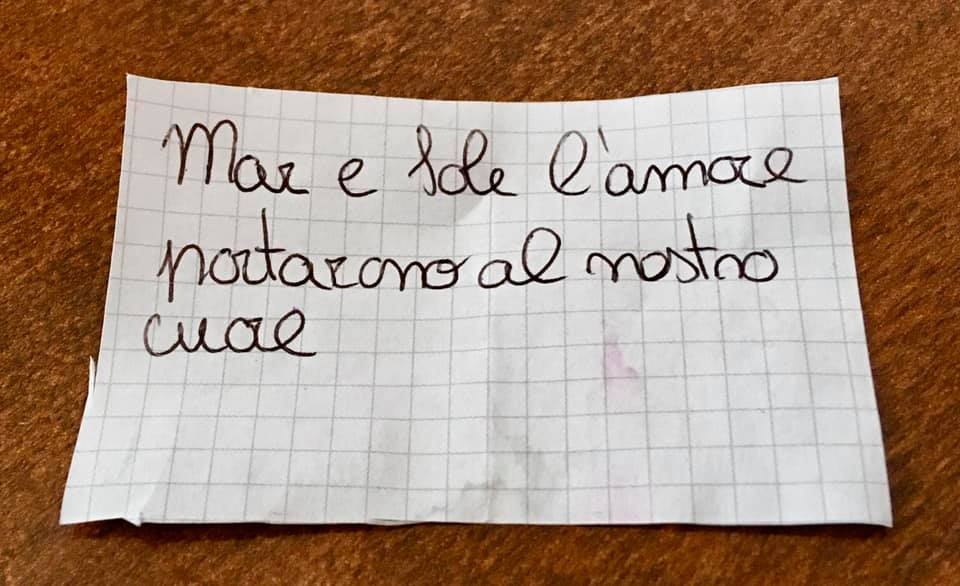 Mar e Sole l'amore
portarono al nostro
cuore